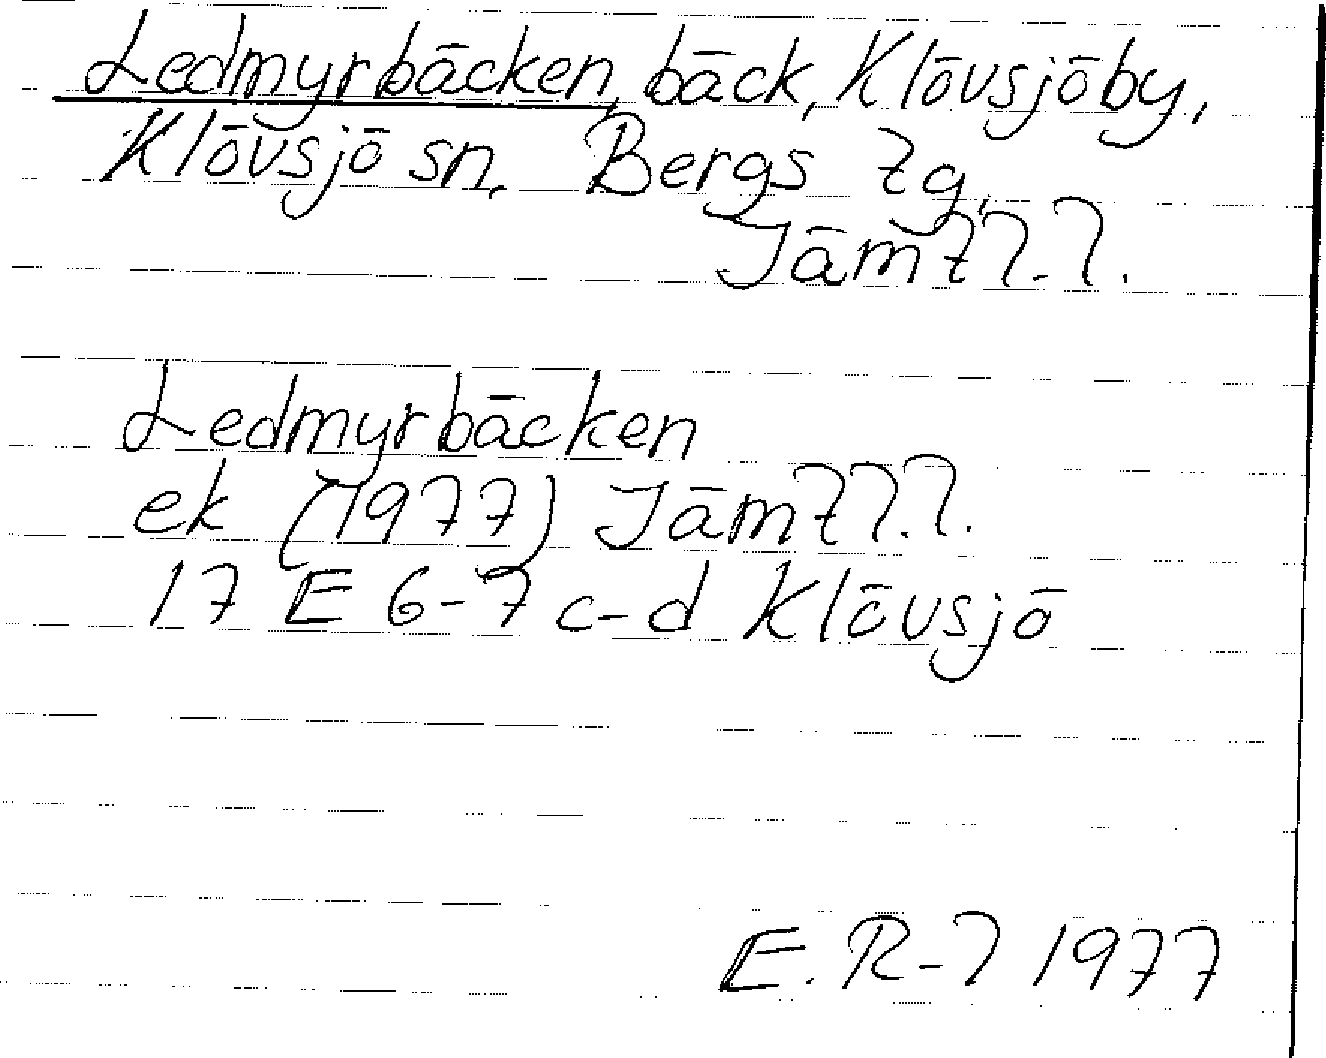 Ledmyrbäcken, bäck, Klövsjöby,
Klövsjö sn, Bergs tg,
Jämtl.l.
Ledmyrbäcken
ek (1977) Jämtl.l.
17 E 6-7 c-d Klövsjö
E. R-l 1977